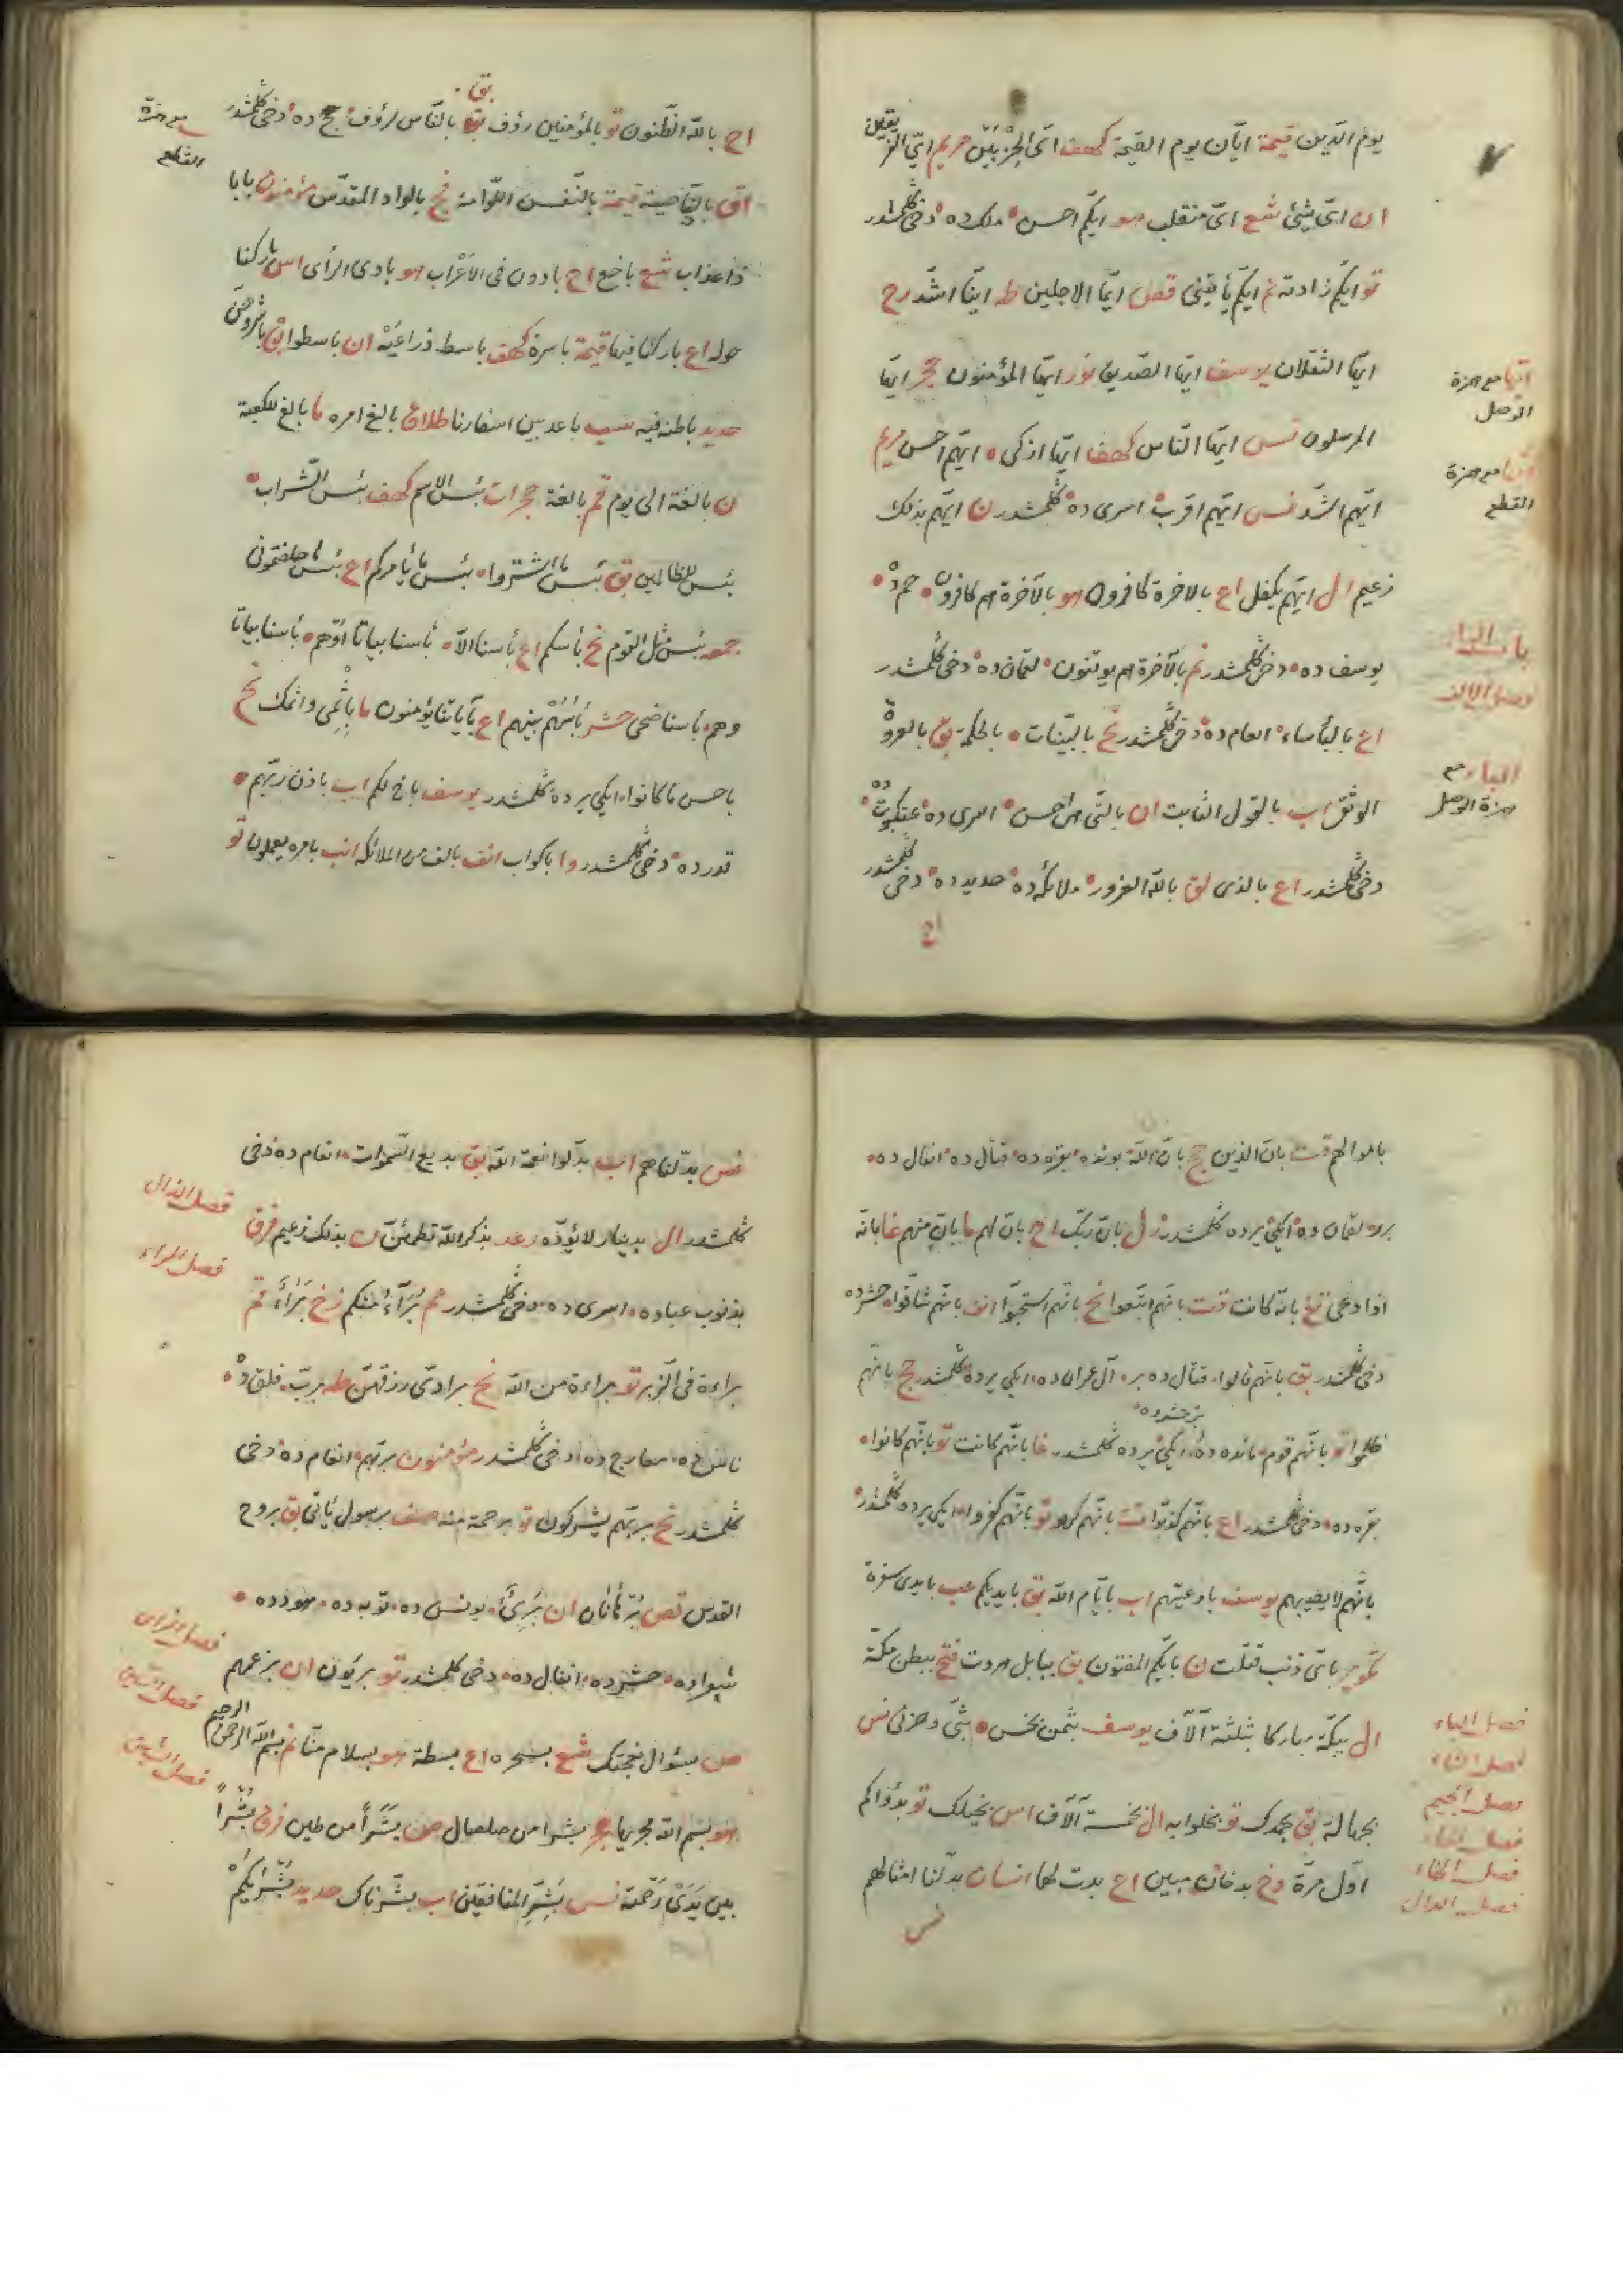 يوم الدّين قيمة ايّان يوم القيمة كهف اىّ الحِزْبَيْنِ مريم اىّ الفريقين
ان اىّ شئ شع اىّ منقلب هو ايّكم احسن ملك ده دخى كلمشدر
تو ايّكم زادته نم ايّكم يأتينى قصص ايّما الاجلين طه ايّنا اشدّ رح
ايّها الثقلان يوسف ايّها الصّديق نور ايّها المؤمنون حجر ايّها
ايّها مع همزة الوصل
المرسلون نس ايّها النّاس كهف ايّها ازكى ايّهم احسن مريم
مع همزة القطع
ايّهم اشدّ نس ايّهم اقرب اسرى ده كلمشدر ن ايّهم بذلك
زعيم ال ايّهم يكفل اع بالاخرة كافرون هو بالآخرة هم كافرون
باب الباء
يوسف ده دخى كلمشدر نم بالآخرة هم يوقنون لقمان ده دخى كلمشدر
فصل الالف
اع بالبأساء انعام ده دخى كلمشدر نح بالبيّنات بالحكمة بق بالعروة
الباء مع همزة الوصل
الوثقى اب بالقول الثابت ان بالّتى هى احسن اسرى ده عنكبوت ده
دخى كلمشدر اع بالذى لق بالله الغرور ملائكه ده حديد ده دخى كلمشدر
اح
اح بالله الظّنون تو بالمؤمنين رؤف بق بالنّاس لرؤف حج ده دخى كلمشدر
مع همزة القطع
بالنّاصية قيمة بالنّفس اللّوّامة بالواد المقدّس مؤمنون بابا
ذا عذاب شع باخع اح بادون فى الاعراب هو بادى الرأى اس باركنا
حوله اع باركنا فيها قيمة باسرة كهف باسط ذراعيه ان باسطوا بق باشروهنّ
حديد باطنه فيه سب باعد بين اسفارنا طلاق بالغ امره ما بالغ الكعبة
ن بالغة الى يوم قم بالغة حجرات بئس الاسم كهف بئس الشّراب
بئس للظالمين بق بئس ما اشتروا بئس ما يأمركم اع بئس ما خلفتمونى
جمعه بئس مثل القوم نح بأسكم اع بأسنا الّا بأسنا بياتا اَوْهم بأسنا بياتا
وهم بأسنا ضحى حشر بأسُهُمْ بينهم اع بآياتنا يؤمنون ما بِاِثْمِى واثمك نح
باحسن ما كانوا ايكى يرده كلمشدر يوسف باخ لكم اب باذن ربّهم
قدر ده دخى كلمشدر وا باكواب انف بالف من الملائكه انب بامره يعملون تو
باموالهم قت بانّ الذين حج بانّ الله بونده بقره ده قتال ده انفال ده
لقمان ده ايكى يرده كلمشدر زل بانّ ربّك اح بانّ لهم ما بانّ منهم غا بانّه
اذا دعى تغ بانّه كانت قت بانّهم اتّبعوا نح بانّهم استحبّوا انف بانّهم شاقّوا حشر ده
دخى كلمشدر بق بانّهم قالوا قتال ده بر آل عمران ده ايكى يرده كلمشدر حج بانّهم
بر حشر ده
ظلموا تو بانّهم قوم مائده ده ايكى يرده كلمشدر غا بانّهم كانت تو بانّهم كانوا
بقره ده دخى كلمشدر اع بانّهم كذّبوا قت بانّهم كرهوا تو بانّهم كفروا ايكى يرده كلمشدر
بانّهم لا يصيبهم يوسف باوعيتهم اب بايّام الله بق بايديكم عب بايدى سفرة
تكوير باىّ ذنب قتلت ن بايّكم المفتون بق ببابل هروت فتح ببطن مكّة
فصل الباء
ال ببكّة مباركا بثلثة آلآف يوسف بثمن بخس بثّى وحزنى نس
فصل الثاء
فصل الجيم
بجهالة بق بحمدك تو بخلوا به ال بخمسة آلآف اس بخيلك تو بدؤاكم
فصل الحاء
فصل الخاء
اوّل مرّة دخ بدخان مبين اح بدت لها انسان بدّلنا امثالهم
فصل الدال
نس
نس بدّلناهم اب بدّلوا نعمة الله بق بديع السّموات انعام ده دخى
فصل الذال
كلمشدر ال بدينار لا يؤدّه رعد بذكر الله تطمئنّ ن بذلك زعيم فرق
فصل الراء
بذنوب عباده اسرى ده دخى كلمشدر مم بُرَآءُ منكم زخ بَرَاءٌ قم
براءة فى الزّبر تو براءة من الله نح برادّى رزقهم طه بربّ فلق ده
ناس ده معارج ده دخى كلمشدر مؤمنون بربّهم انعام ده دخى
كلمشدر نح بربّهم يشركون تو برحمة منه صف برسول يأتى بق بروح
القدس قص برهانان ان بَرِئٌ يونس ده توبه ده هود ده
فصل الزاى
شعرا ده حشر ده انفال ده دخى كلمشدر تو بريؤن ان بزعمهم
فصل السّين
ص بسؤال نعجتك شع بسحره اع بسطة هو بسلام منّا نم بسم الله الرحمن الرحيم
فصل الشّين
هو بسم الله مجريها حجر بشرا من صلصال ص بَشَراً من طين فرق بُشْراً
بين يَدَىْ رَحْمته نس بَشِّرِ المنافقين اب بشّرناك حديد بُشْرٰيكُمْ